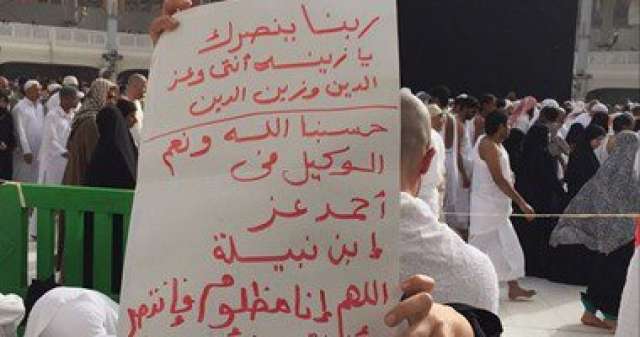 ربنا ينصرك
يا زينه أنتى وعز
الدين وزين الدين
حسبنا الله ونعم
الوكيل فى
أحمد عز
إبن نبيلة
اللهم إنا مظلوم فإنتصر